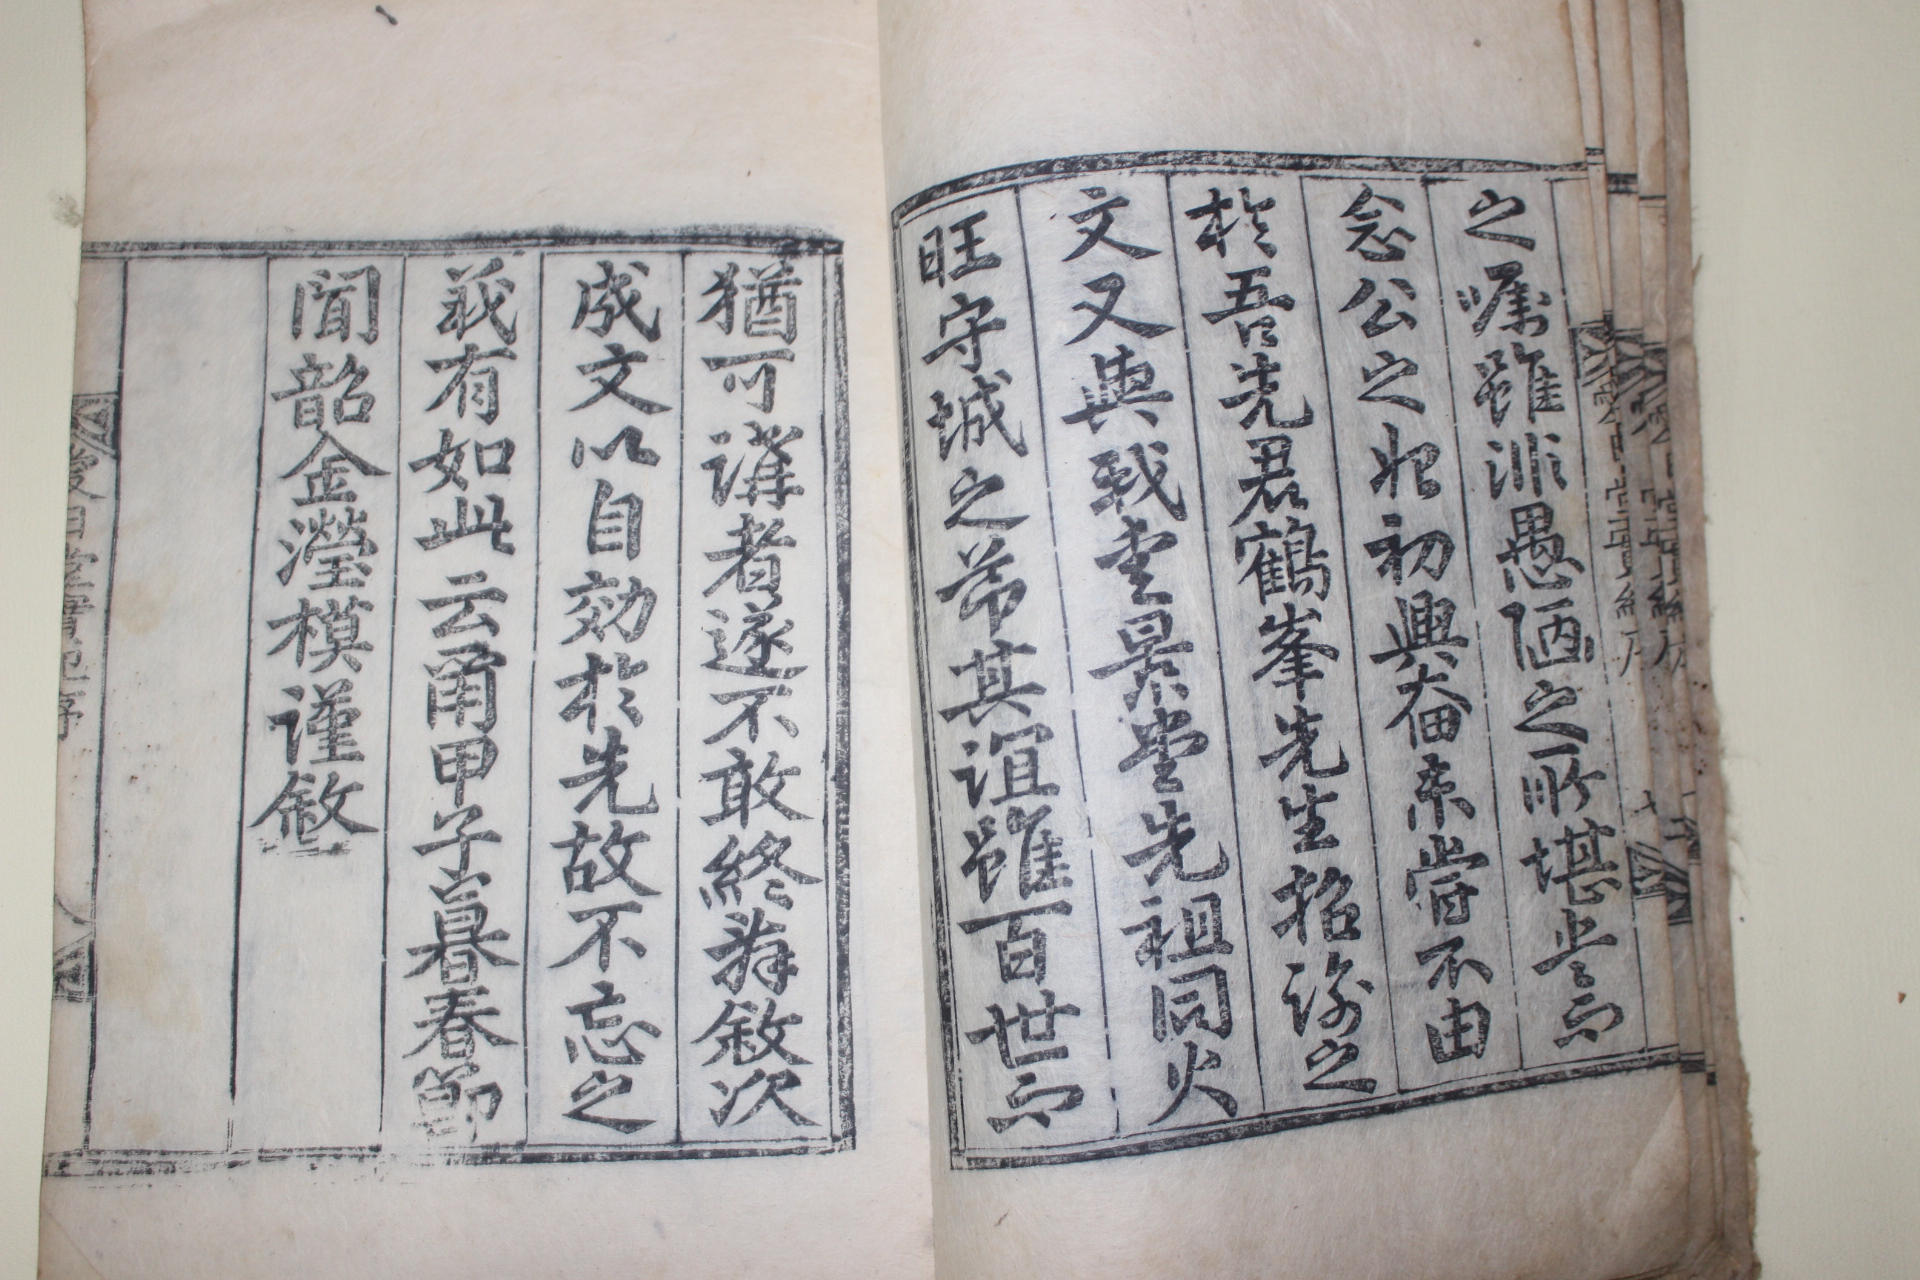 之囑雖非愚陋之所堪然亦
念公之於初興奋未嘗不由
於吾先君鶴峯先生招諭之
文又與戟堂景堂先祖同火
旺守城之蹟其誼雖百世亦
猶可講者遂不敢終辭敘次
成文以自効於先故不忘之
義有如此云甬甲子暮春節
聞韶金瀅模謹敘